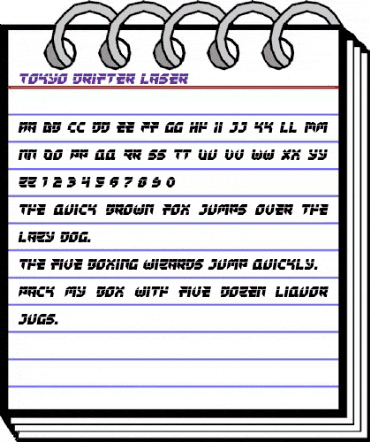 TOKYO DRIFTER LASER
AA BB CC DD EE FF GG HH II JJ KK LL MM
NN OO PP QQ RR SS TT UU VV WW XX YY
ZZ 1 2 3 4 5 6 7 8 9 0
THE QUICK BROWN FOX JUMPS OVER THE
LAZY DOG.
THE FIVE BOXING WIZARDS JUMP QUICKLY.
PACK MY BOX WITH FIVE DOZEN LIQUOR
JUGS.